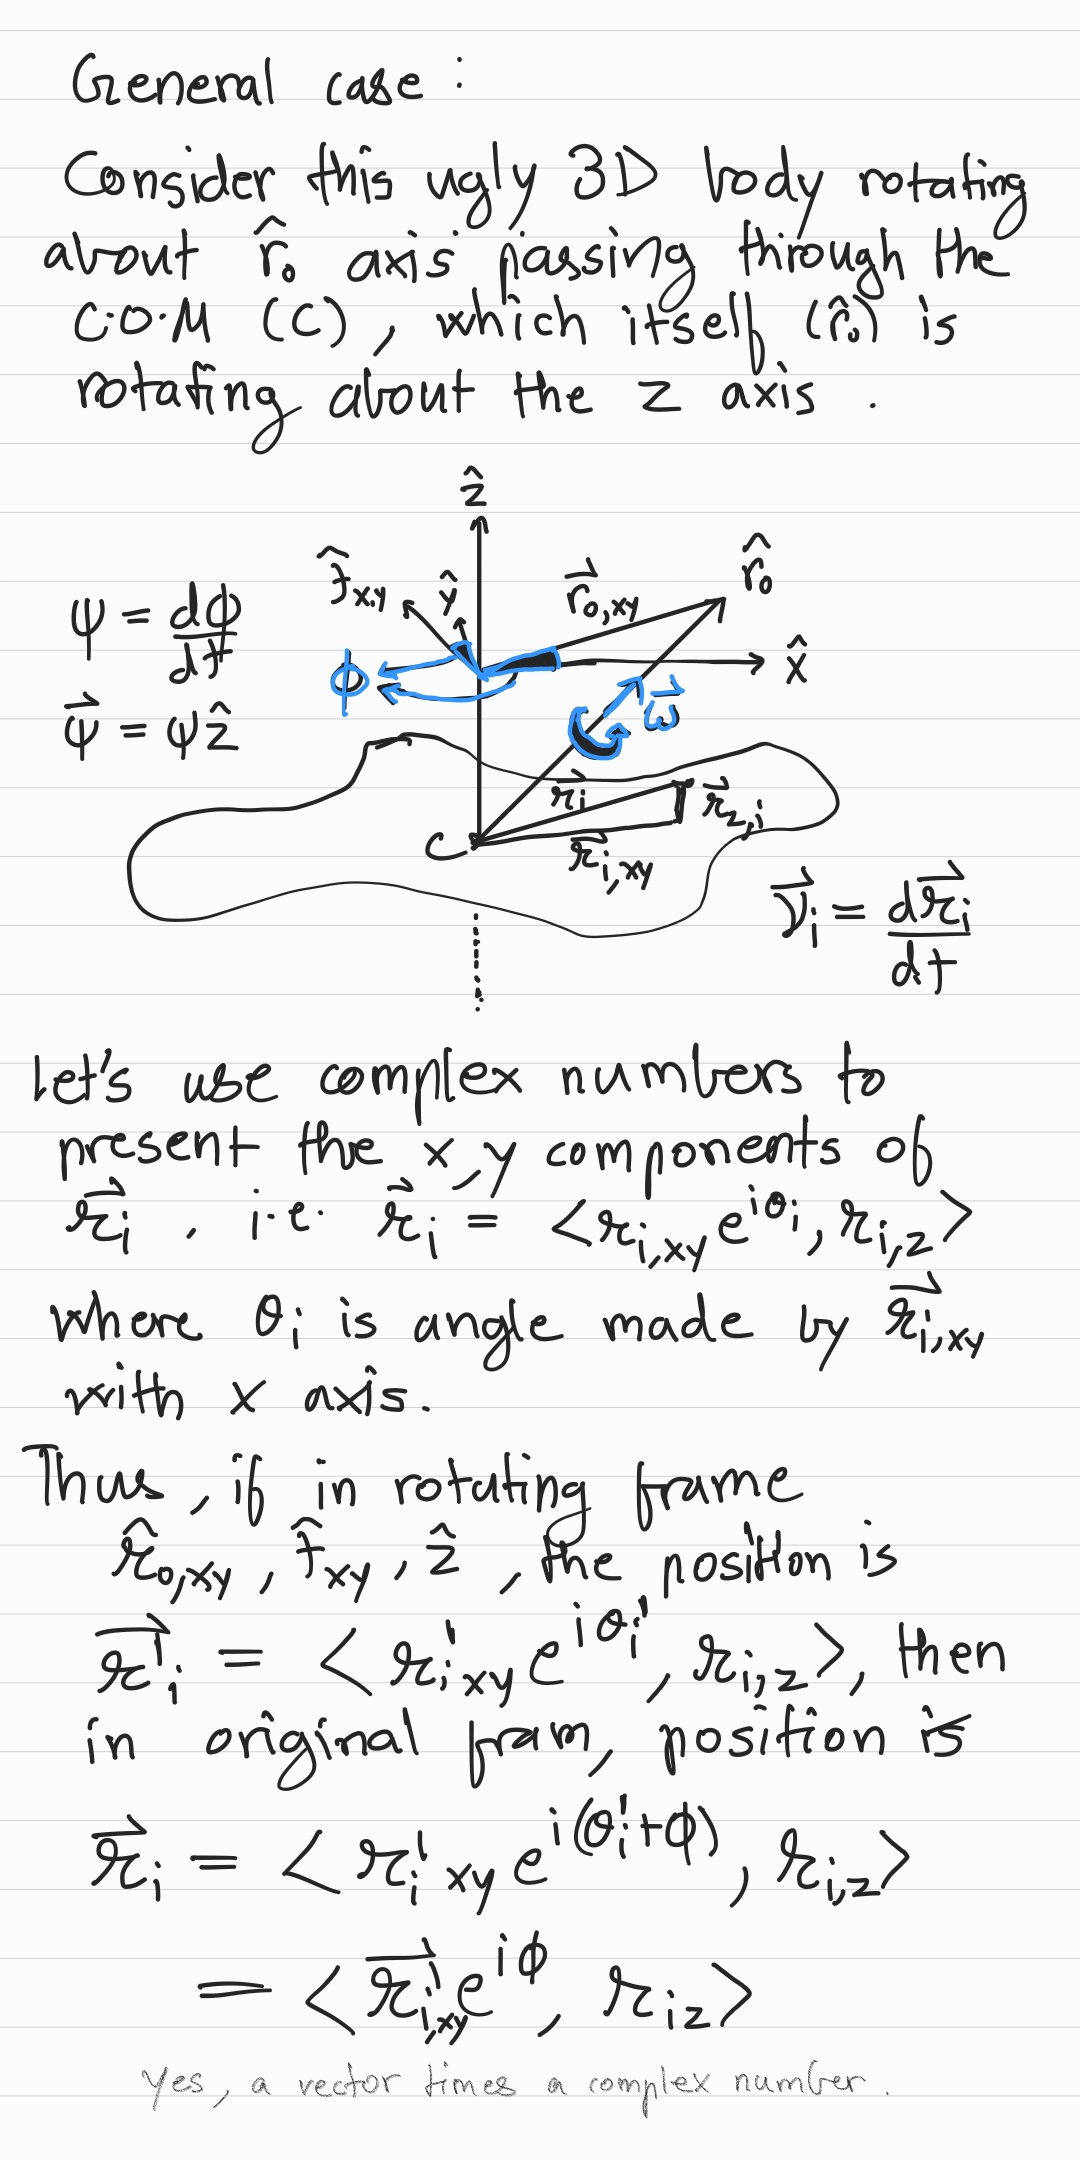 General case :
Consider this ugly 3D body rotating
about r̂₀ axis passing through the
C.O.M (C), which itself (r̂₀) is
rotating about the z axis .
ẑ
f̂ₓ,ᵧ
ŷ
r⃗_{0,xy}
r̂₀
x̂
ψ = dϕ/dt
ϕ
ψ⃗ = ψẑ
ω⃗
r⃗_i
r⃗_{z,i}
C
r⃗_{i,xy}
v⃗_i = dr⃗_i/dt
Let's use complex numbers to
present the x,y components of
r⃗_i , i.e. r⃗_i = <r_{i,xy} e^{iθ_i}, r_{i,z}>
where θ_i is angle made by r⃗_{i,xy}
with x axis.
Thus, if in rotating frame
r̂_{0,xy} , f̂_{xy} , ẑ , the position is
r⃗'_i = < r'_{i,xy} e^{iθ'_i} , r_{i,z}>, then
in original fram, position is
r⃗_i = < r'_{i,xy} e^{i(θ'_i+ϕ)} , r_{i,z}>
= < r⃗'_{i,xy} e^{iϕ} , r_{iz}>
Yes, a vector times a complex number.